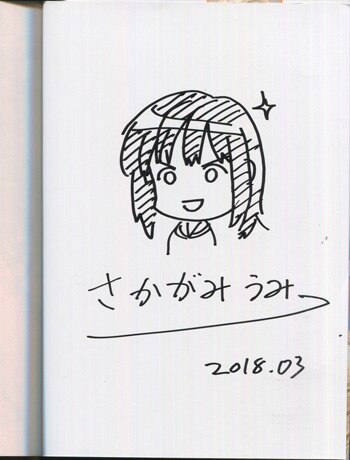 さかがみ うみ
2018.03